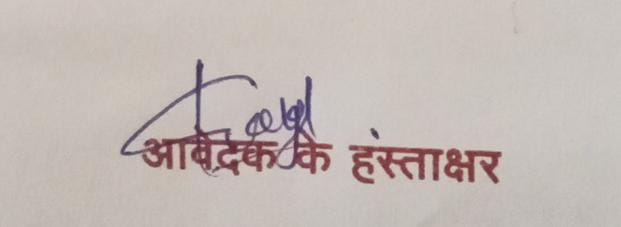 आवेदक के हंस्ताक्षर